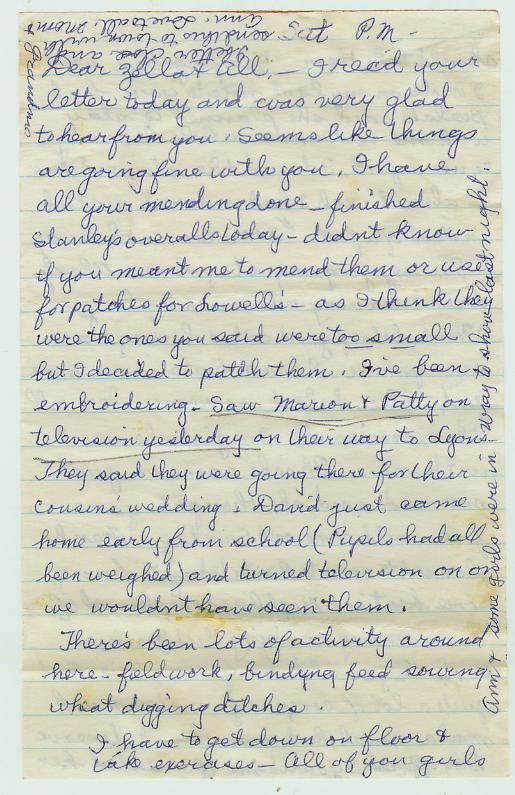 Sat P.M -
Dear Zella & All, - I rec'd your
letter today and was very glad
to hear from you. Seems like things
are going fine with you. I have
all your mending done - finished
Stanley's overalls today - didn't know
if you meant me to mend them or use
for patches for Lowell's - as I think they
were the ones you said were too small
but I decided to patch them. I've been
embroidering - Saw Marion & Patty on
television yesterday on their way to Lyons -
They said they were going there for their
cousin's wedding. David just came
home early from school (Pupils had all
been weighed) and turned television on or
we wouldn't have seen them.
There's been lots of activity around
here - field work, bindyng feed sowing
wheat digging ditches.
I have to get down on floor &
take exercises - All of you girls
Ann & some girls were in Wray to show last night.
Better close and
send this to town with
Ann. Love to all. Mom
& Grandma